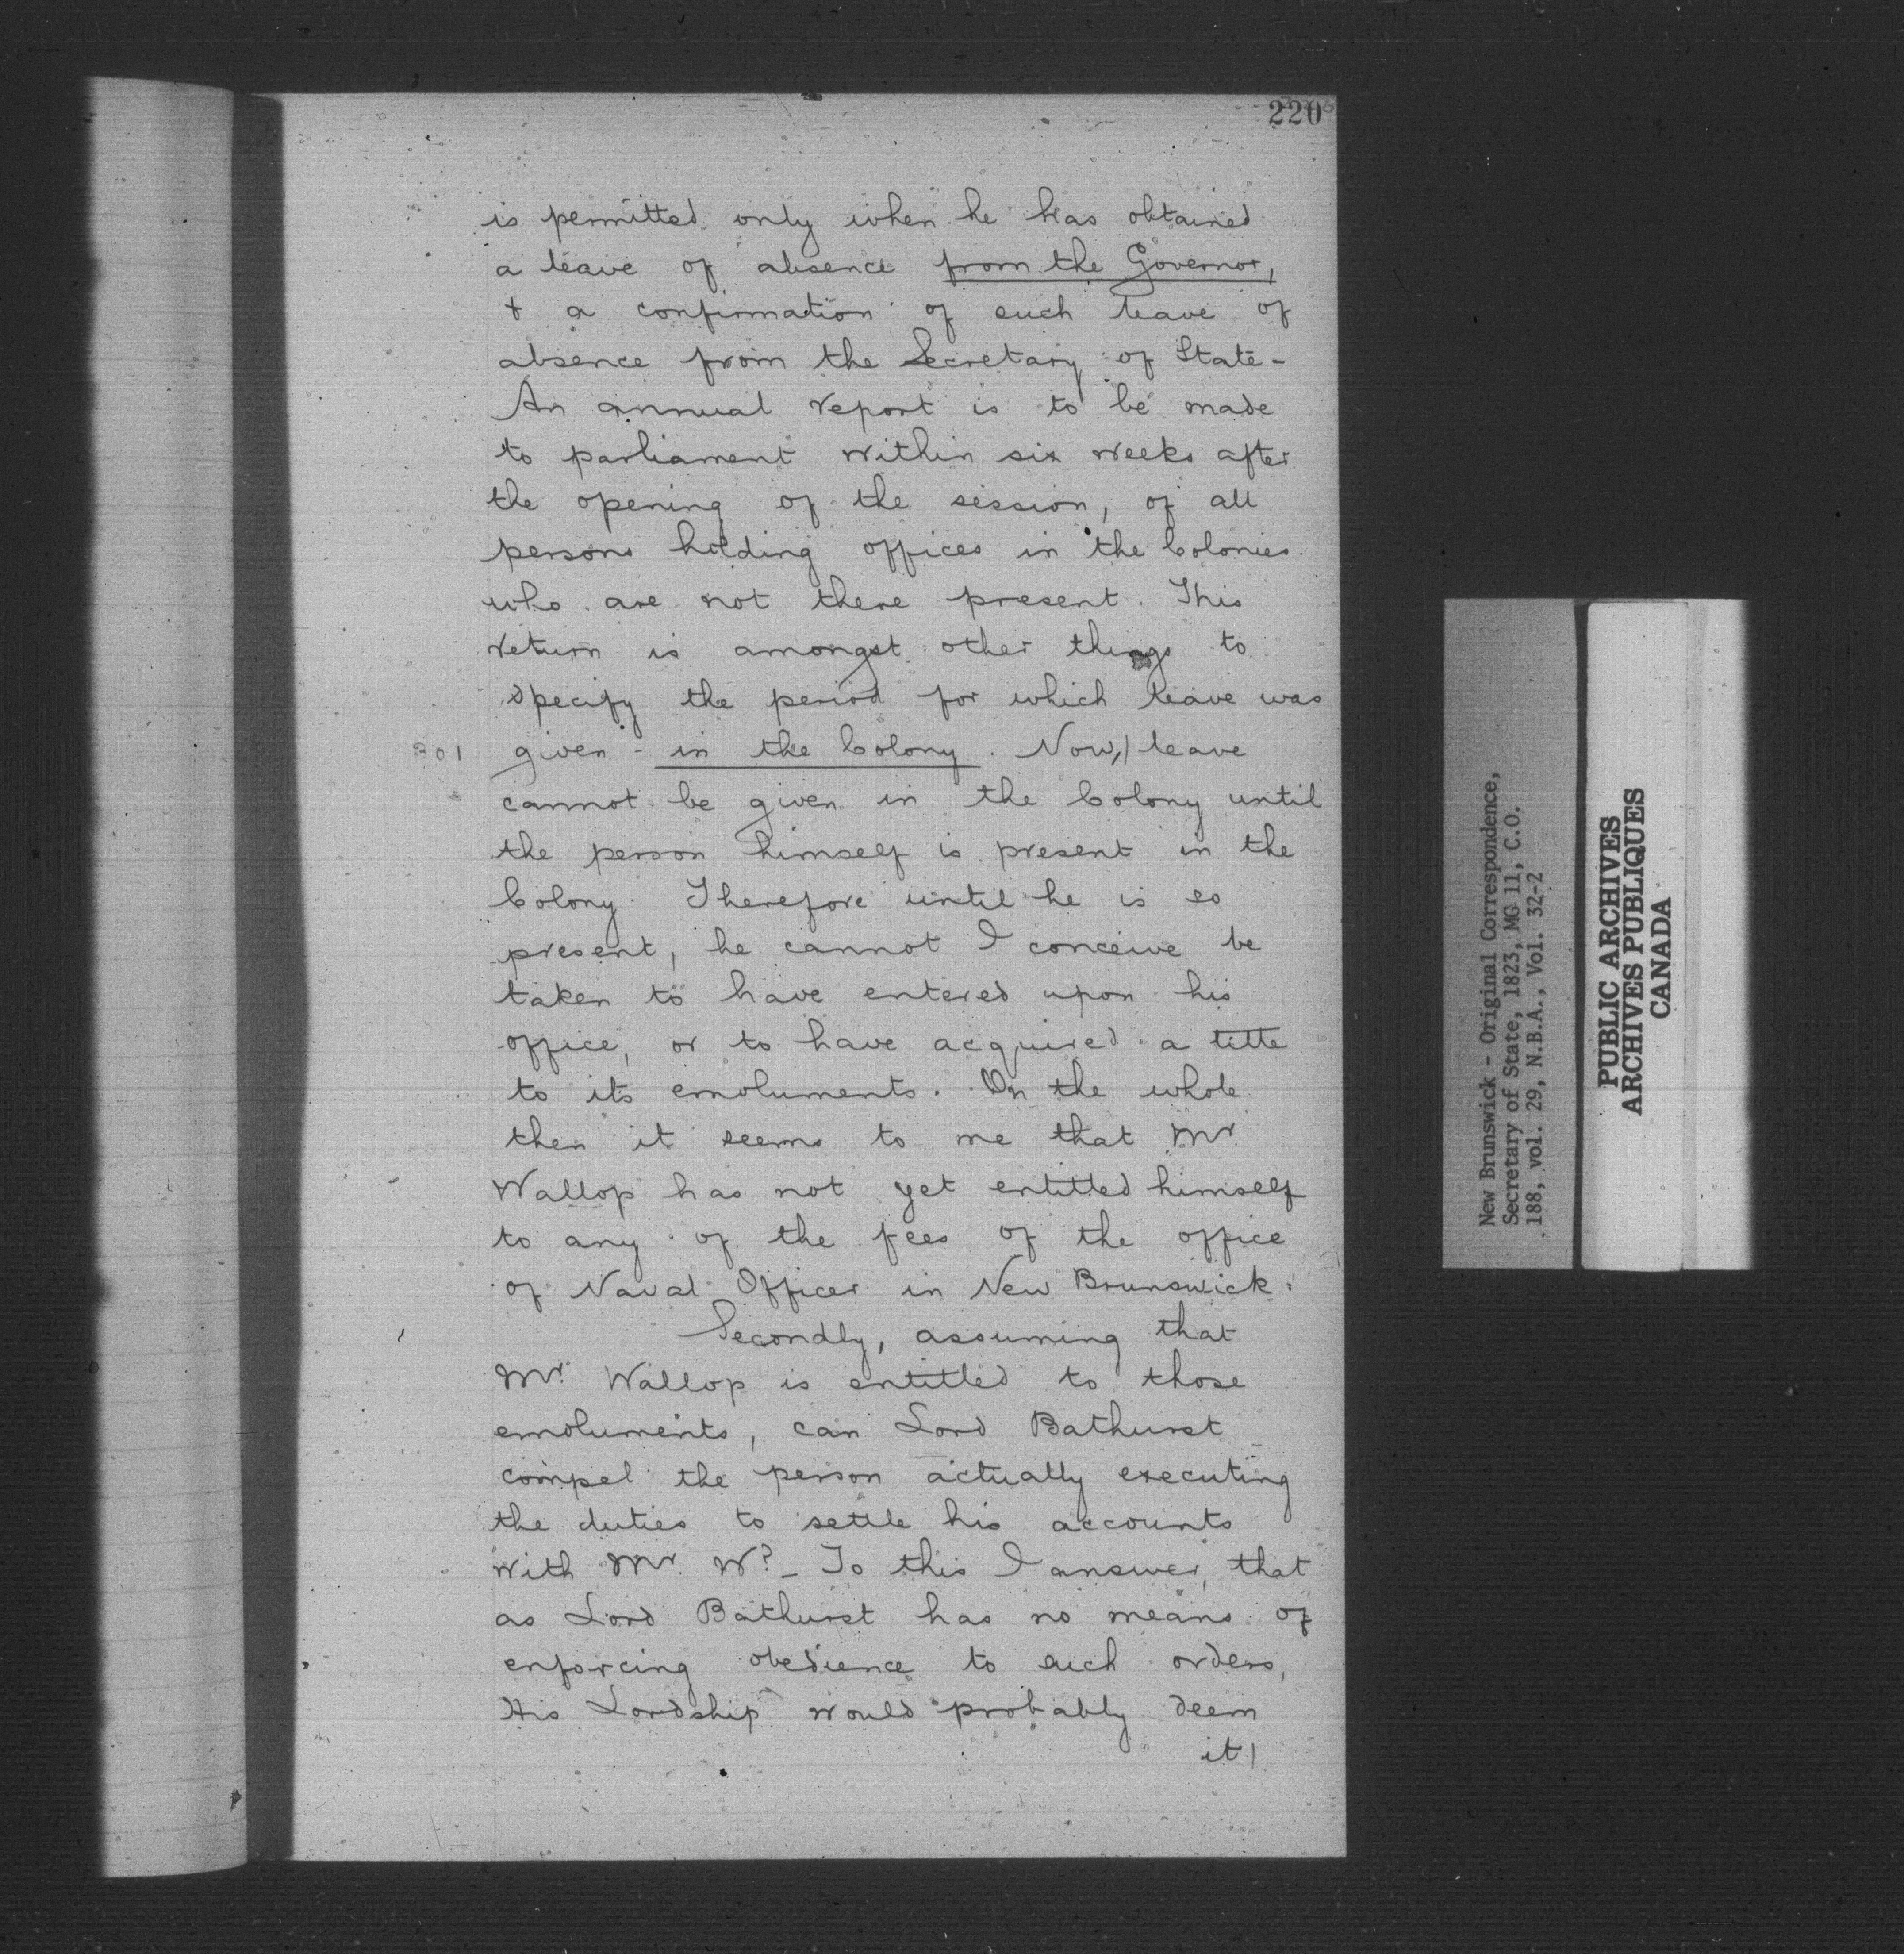 220
is permitted only when he has obtained
a leave of absence from the Governor,
+ a confirmation of such leave of
absence from the Secretary of State -
An annual report is to be made
to parliament within six weeks after
the opening of the session, of all
persons holding offices in the Colonies
who are not there present. This
return is amongst other things to
specify the period for which leave was
301 given - in the Colony. Now,/ leave
cannot be given in the Colony until
the person himself is present in the
Colony. Therefore until he is so
present, he cannot I conceive be
taken to have entered upon his
office, or to have acquired a title
to its emoluments. On the whole
then it seems to me that Mr.
Wallop has not yet entitled himself
to any of the fees of the office
of Naval Officer in New Brunswick.
Secondly, assuming that
Mr. Wallop is entitled to those
emoluments, can Lord Bathurst
compel the person actually executing
the duties to settle his accounts
with Mr. W? - To this I answer, that
as Lord Bathurst has no means of
enforcing obedience to such orders,
His Lordship would probably deem
it/
New Brunswick - Original Correspondence,
Secretary of State, 1823, MG 11, C.O.
188, vol. 29, N.B.A., Vol. 32-2
PUBLIC ARCHIVES
ARCHIVES PUBLIQUES
CANADA